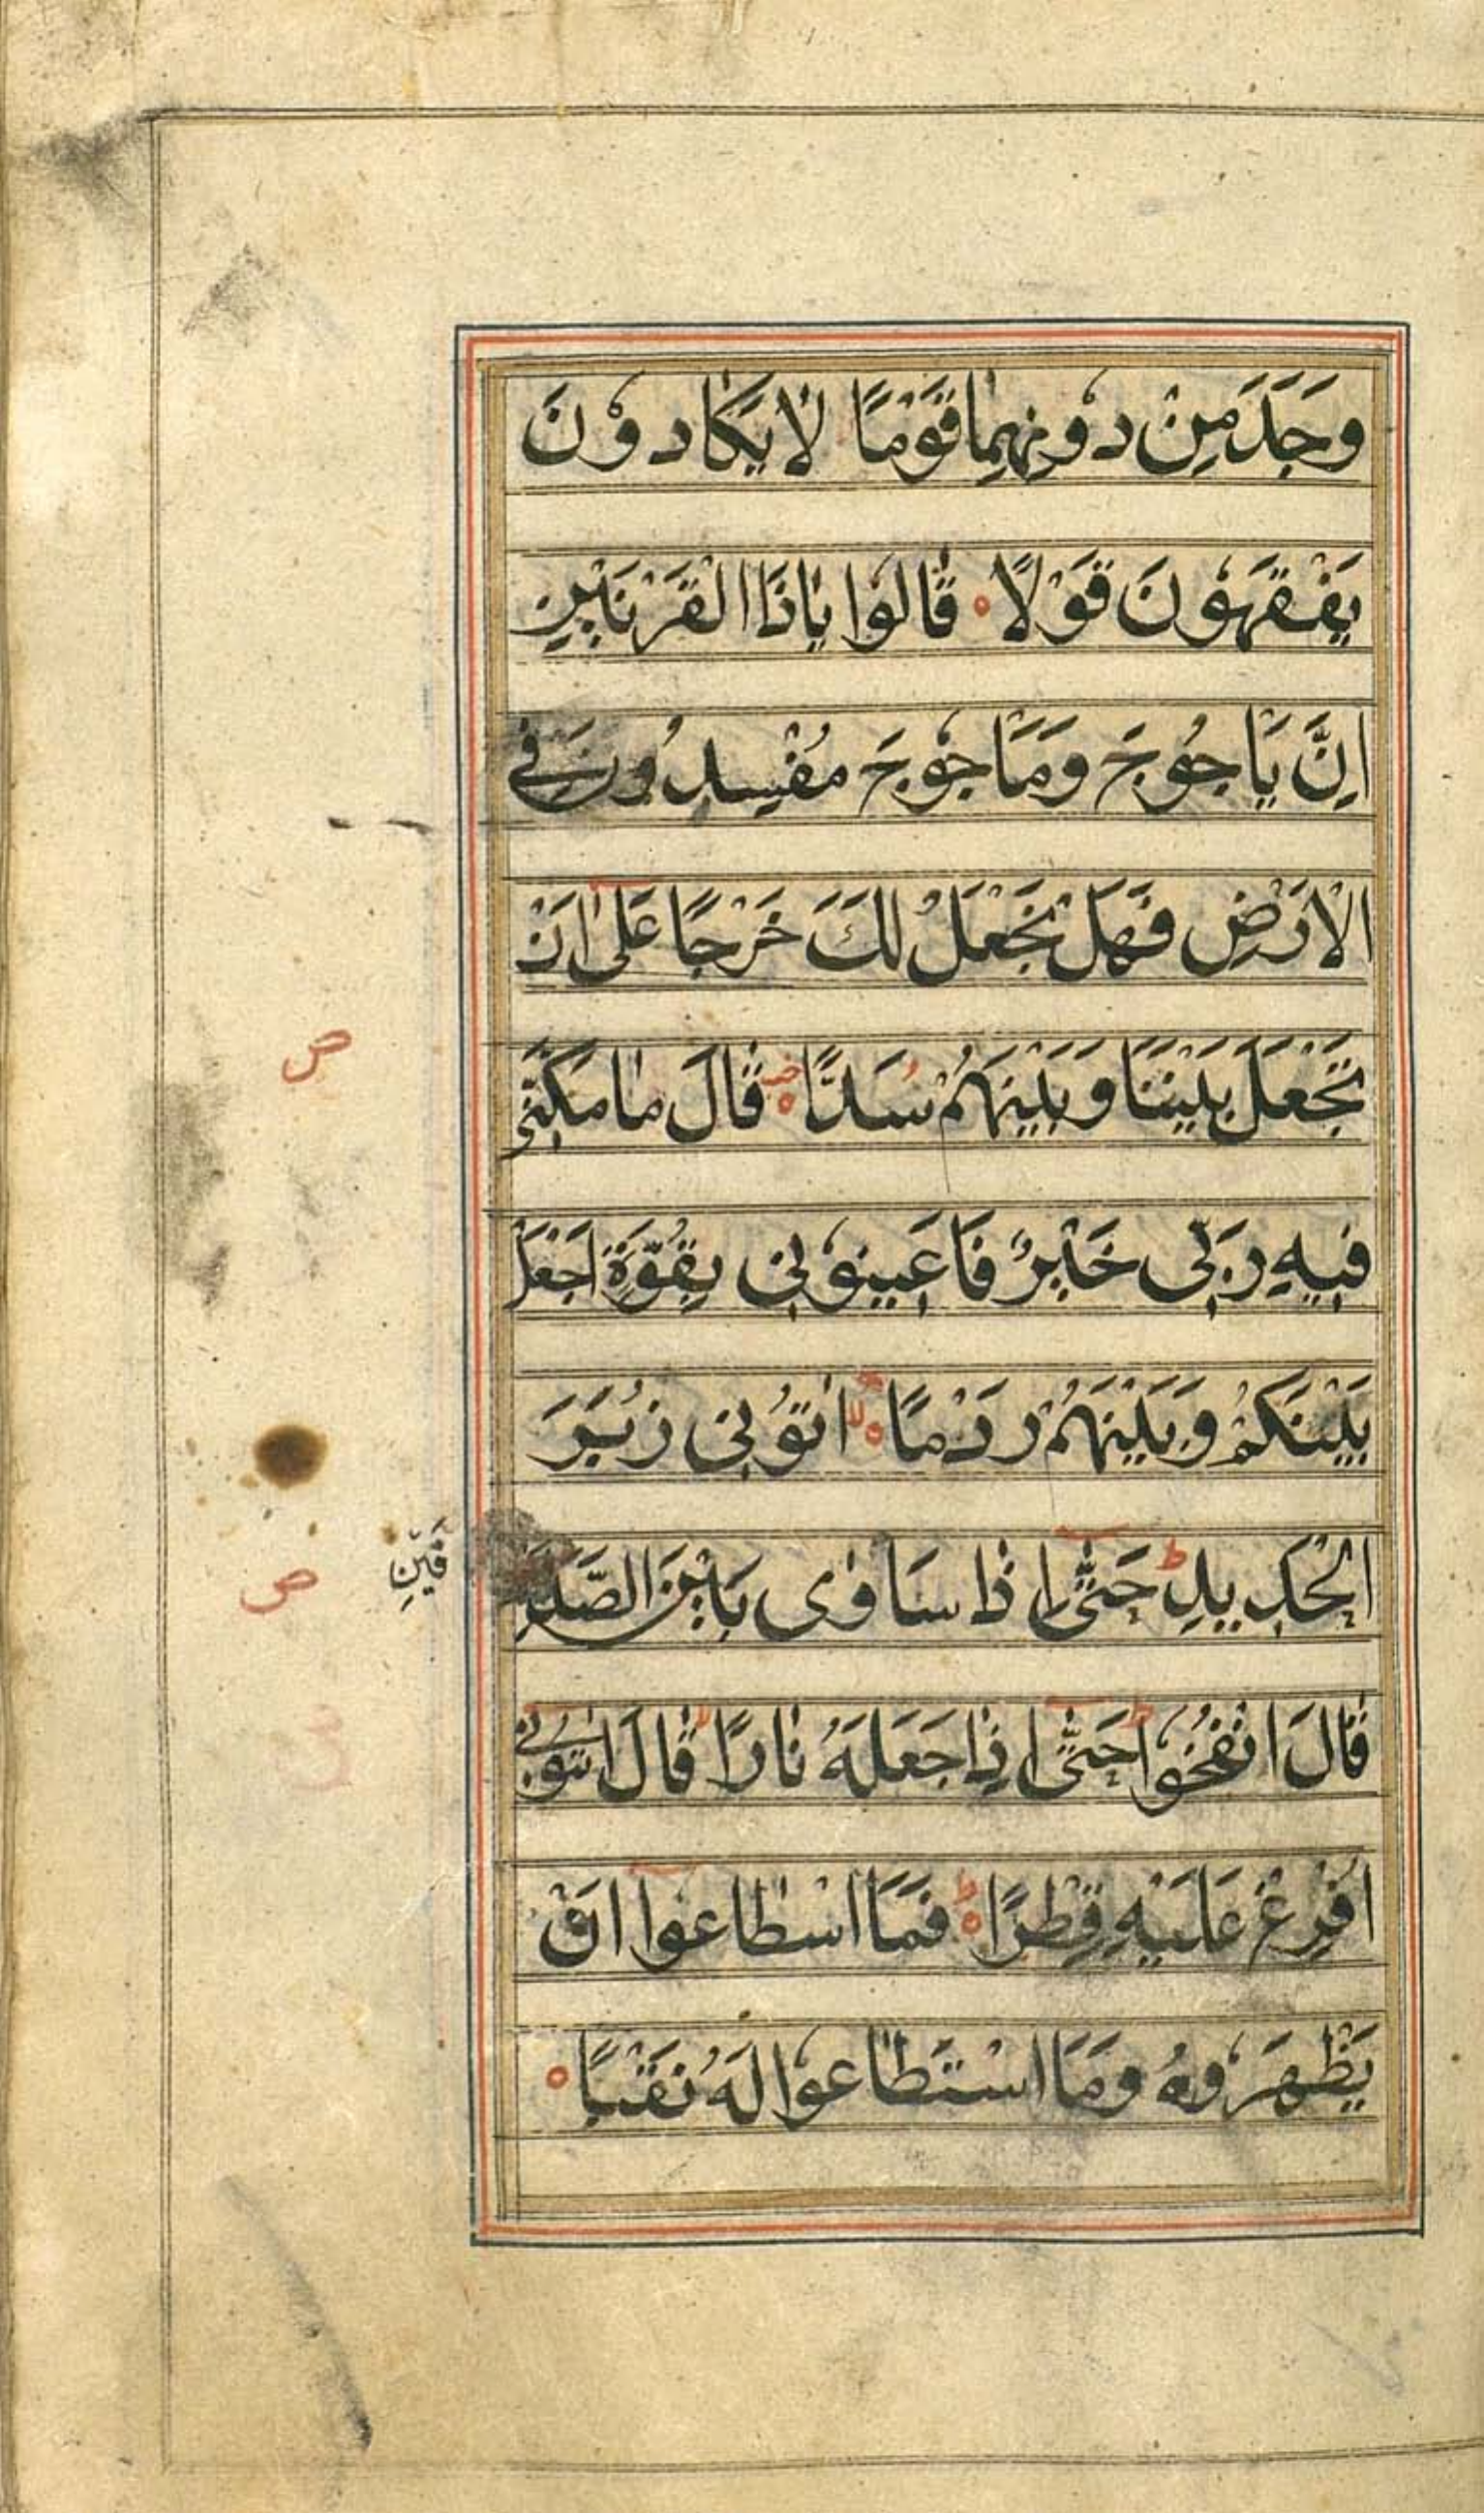 وَجَدَ مِنْ دُونِهِمَا قَوْمًا لَا يَكَادُونَ
يَفْقَهُونَ قَوْلًا ۝ قَالُوا يَاذَا الْقَرْنَيْنِ
اِنَّ يَاْجُوجَ وَمَاْجُوجَ مُفْسِدُونَ فِي
الْاَرْضِ فَهَلْ نَجْعَلُ لَكَ خَرْجًا عَلٰى اَنْ
تَجْعَلَ بَيْنَنَا وَبَيْنَهُمْ سُدًّا ۝ قَالَ مَا مَكَنّٰى
ص
فِيهِ رَبِّى خَيْرٌ فَاَعِينُونِى بِقُوَّةٍ اَجْعَلْ
بَيْنَكُمْ وَبَيْنَهُمْ رَدْمًا ۝ لا اتُوْنِى زُبَرَ
الْحَدِيدِ ط حَتّٰى اِذَا سَاوٰى بَيْنَ الصَّدَ
فَيْنِ
ص
قَالَ انْفُخُوا ط حَتّٰى اِذَا جَعَلَهُ نَارًا لا قَالَ اتُوْنِى
اُفْرِغْ عَلَيْهِ قِطْرًا ۝ ط فَمَا اسْطَاعُوا اَنْ
يَظْهَرُوهُ وَمَا اسْتَطَاعُوا لَهُ نَقْبًا ۝